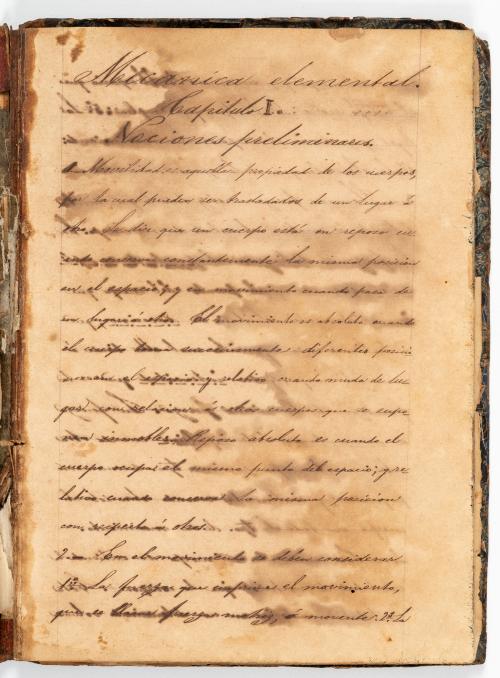 Mecanica elemental.
Capitulo I.
Nociones preliminares.
Movilidad es aquella propiedad de los cuerpos,
por la cual pueden ser trasladados de un lugar á
otro. Se dice que un cuerpo está en reposo
conserva constantemente la misma posicion
en el espacio, y en movimiento cuando pasa de
un lugar á otro. El movimiento es absoluto cuando
el cuerpo toma sucesivamente diferentes posici
ones en el espacio, y relativo cuando muda de lu
gar con relacion á otros cuerpos que se supo
nen inmobles. Reposo absoluto es cuando el
cuerpo ocupa el mismo punto del espacio; y re
lativo cuando conserva la misma posicion
con respecto á otros.
2 En el movimiento se deben considerar
1º La fuerza que imprime el movimiento,
que se llama fuerza motriz, ó 2º la